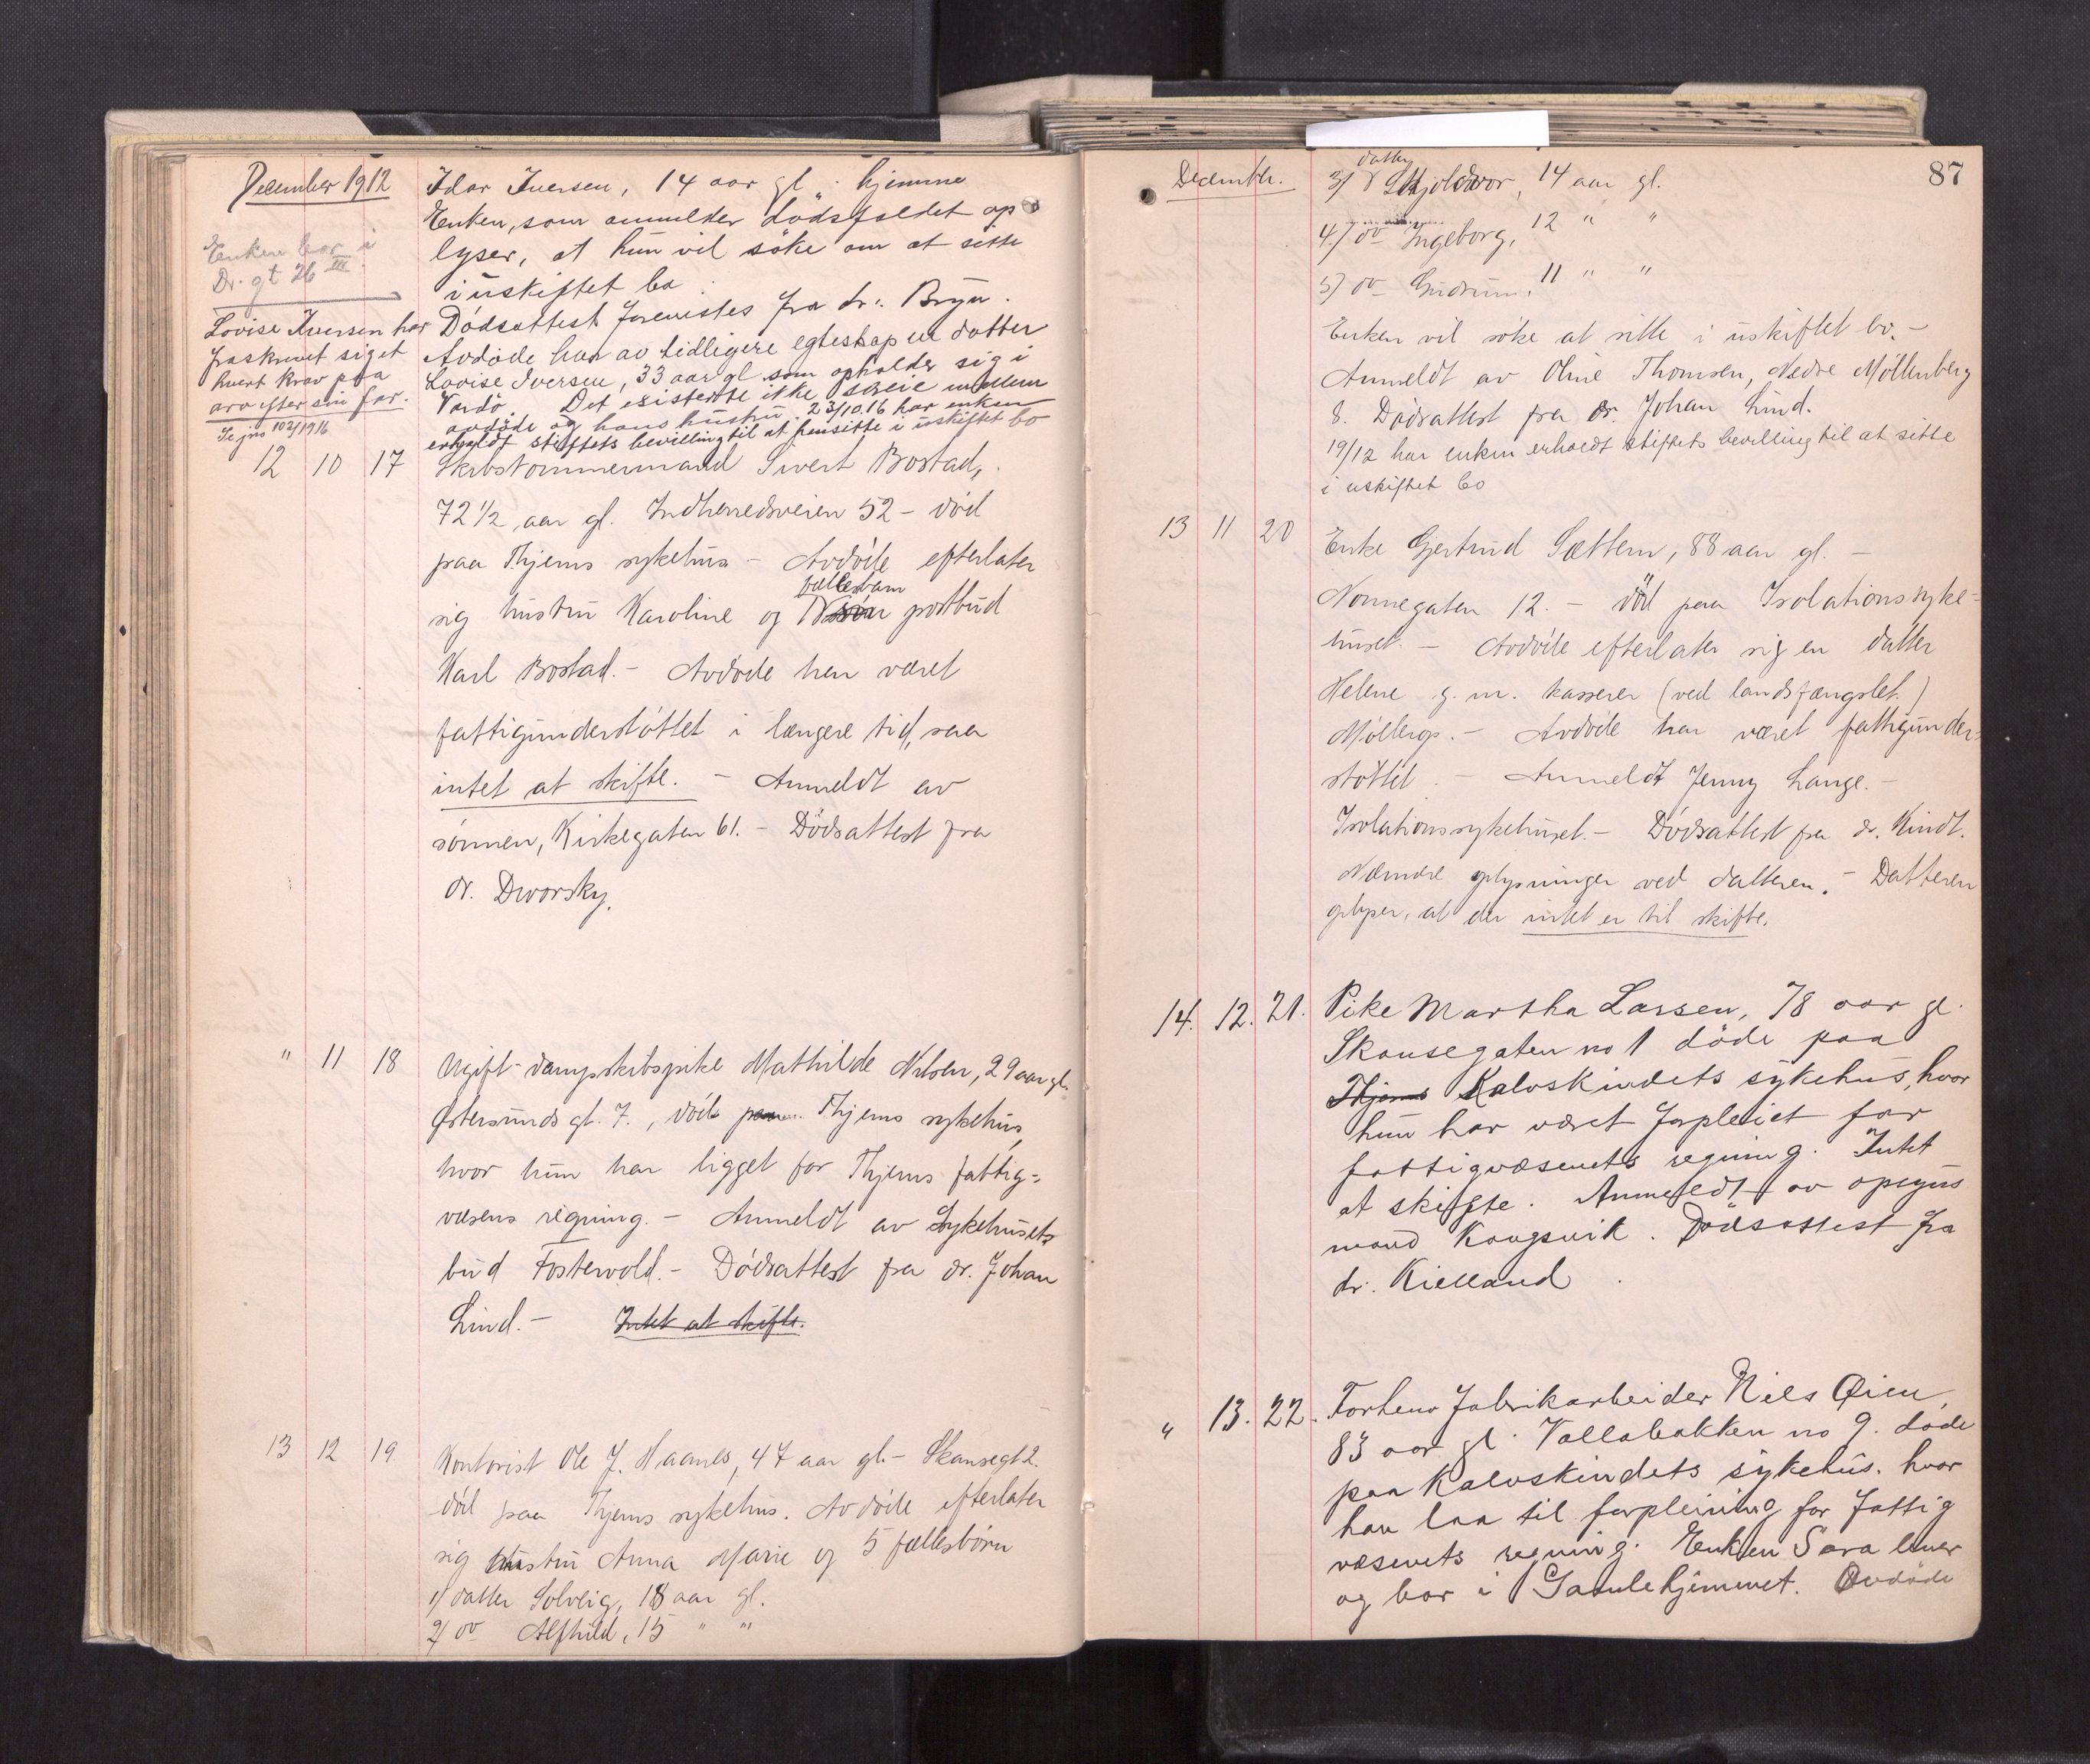 December 1912
Idar Iversen, 14 aar gl. hjemme
Enken, som anmelder dödsfaldet op
lyser, at hun vil söke om at sitte
i uskiftet bo
Enken bor i
Dr. gt 26 III
Dödsattest forevistes fra dr. Bryn.
Avdöde har av tidligere egteskap en datter
Lovise Iversen, 33 aar gl som opholder sig i
Vardö. Det existerte ikke særeie mellem
avdöde og hans hustru. 23/10.16 har enken
erholdt stiftets bevilling til at hensitte i uskiftet bo
Lovise Iversen har
fraskrevet sig et
hvert krav paa
arv efter sin far.
Se jno 102/1916
12 10 17 Skibstømmermand Sivert Bostad,
72 1/2 aar gl. Indherredsveien 52 - död
paa Thjems sykehus - Avdöde efterlater
fællesbarn
sig hustru Karoline og postbud
Karl Bostad. - Avdöde har været
fattigunderstöttet i længere tid, saa
intet at skifte. - Anmeldt av
sönnen, Kirkegaten 61. - Dödsattest fra
dr. Dworsky.
" 11 18 Ugift dampskibspike Mathilde Nilsen, 29 aar gl.
Østersunds gt. 7., död paa Thjems sykehus,
hvor hun har ligget for Thjems fattig=
væsens regning. - Anmeldt av Sykehusets
bud Fostervold. - Dödsattest fra dr. Johan
Lind. - Intet at skifte.
13 12 19 Kontorist Ole J. Haanes, 47 aar gl. - Skansegt 2.
död paa Thjems sykehus. Avdöde efterlater
sig hustru Anna Marie og 5 fællesbörn
1/ datter Solveig, 18 aar gl.
2/ do Alfhild, 15 " "
87
Decembr.
datter
3/ Skjoldvor, 14 aar gl.
4/ do Ingeborg, 12 " "
5/ do Gudrun, 11 " "
Enken vil söke at sitte i uskiftet bo. -
Anmeldt av Oline Thomsen, Nedre Möllenberg
8. Dödsattest fra dr. Johan Lind.
19/12 har enken erholdt stiftets bevilling til at sitte
i uskiftet bo
13 11 20 Enke Gjertrud Sættem, 88 aar gl. -
Nonnegaten 12. - död paa Isolationssyke-
huset. - Avdöde efterlater sig en datter
Helene g. m. kasserer (ved landsfængslet.)
Möllerop. - Avdöde har været fattigunder-
stöttet. - Anmeldt Jenny Lange. -
Isolationssykehuset. - Dödsattest fra dr. Kindt.
Nærmere oplysninger ved datteren. - Datteren
oplyser, at der intet er til skifte.
14. 12. 21. Pike Martha Larsen, 78 aar gl.
Skansegaten no 1 döde paa
Thjems Kalvskindets sykehus, hvor
hun har været forpleiet for
fattigvæsenets regning. Intet
at skifte. Anmeldt av opsyns
mand Kongsvik. Dödsattest fra
dr. Kielland
" 13. 22. Forhenv fabrikarbeider Nils Øien,
83 aar gl. Vollabakken no 9. döde
paa Kalvskindets sykehus. hvor
han laa til forpleining for fattig
væsenets regning. Enken Sara lever
og bor i Gamlehjemmet. Avdöde